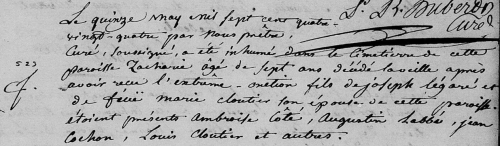 St. Hubert
Curé
Le quinze may mil sept cent quatre
vingt-quatre par Nous prêtre,
Curé, soussigné, a été inhumé dans le Cimetierre de cette
paroisse Zacharie âgé de sept ans décédé la veille après
523
avoir recu l'extrême-onction fils de joseph légaré et
de marie cloutier son épouse de cette paroisse
étoient présents Ambroise Côté, Augustin labbé, jean
Cochon, Louis Cloutier et autres.